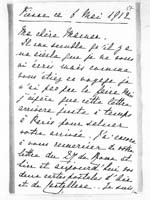 Vienne ce 6 Mai 1912
Ma chère Maman.
Il me semble qu'il y a
un siècle que je ne vous
ai écrit mais comme
vous étiez en voyage je
n'ai pas pu le faire. Me
j'espère que cette lettre
arrivera juste à temps
à Paris pour saluer
votre arrivée. J'ai
à vous remercier de votre
lettre du 29 de Rome et
hier et aujourd'hui vos
deux cartes postales d'
et de Je suis